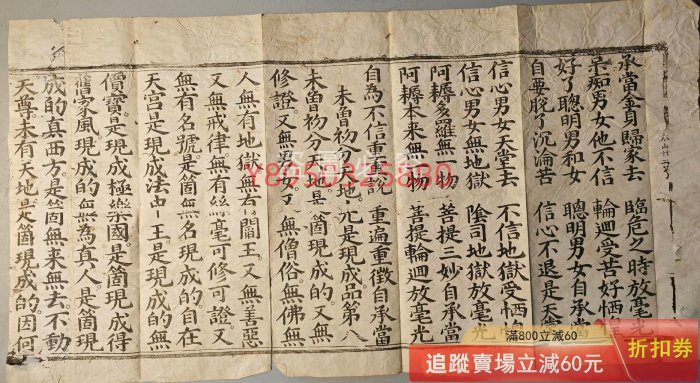 承當金身歸家去 臨危之時放毫光
呆痴男女他不信 輪迴受苦好恓
好了聰明男和女 聰明男女自承當
自要脫了沉淪苦 信心不退是天
信心男女天堂去 不信地獄受恓
信心男女無地獄 陰司地獄放毫光
阿耨多羅無一物 菩提三妙自承當
阿耨本來無一物 菩提輪迴放毫光
自為不信重 說 重遍重徵自承當
未曾初分天地尤是現成品第八
未曾初分天地是箇現成的又無
修證又無男女又無僧俗無佛無
人無有地獄無有閻王又無善惡
又無戒律無有絲毫可修可證又
無有名號是箇無名現成的自在
天宮是現成法中王是現成的無
價寶是現成極樂國是箇現成得
舊家風現成的無為真人是箇現
成的真西方是箇無來無去不動
天尊未有天地是箇現成的因何
滿800立減60
追蹤賣場立減60元
折扣券